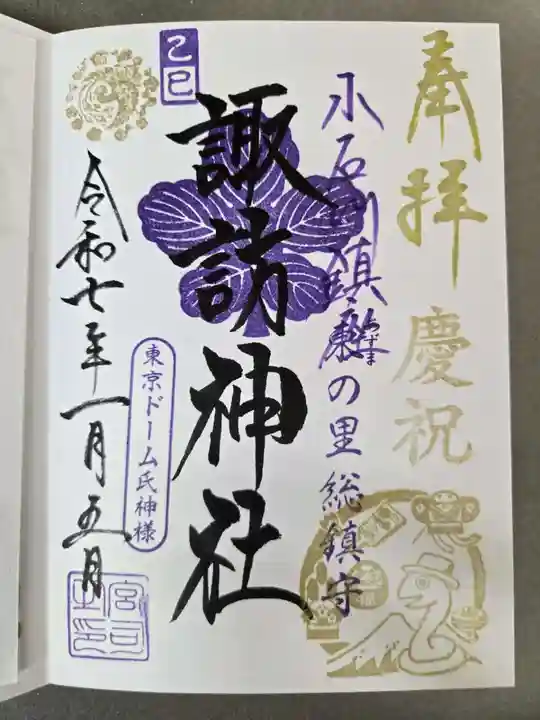 奉拝
慶祝
小石川鎮
の里総鎮守
乙巳
諏訪神社
東京ドーム氏神様
令和七年一月五日
宮司之印